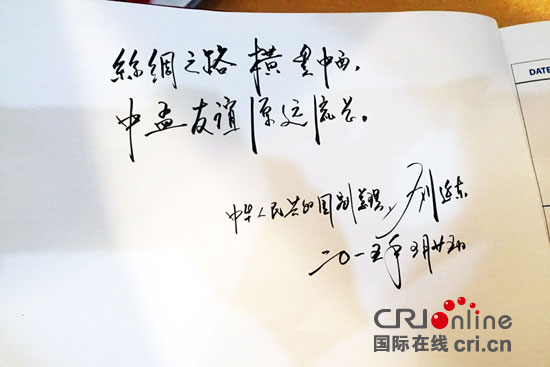 絲綢之路 横贯中西，
中孟友谊源远流长。
中华人民共和国副总理 刘延东
二〇一五年五月廿五日
DATE
CRIonline
国际在线 cri.cn